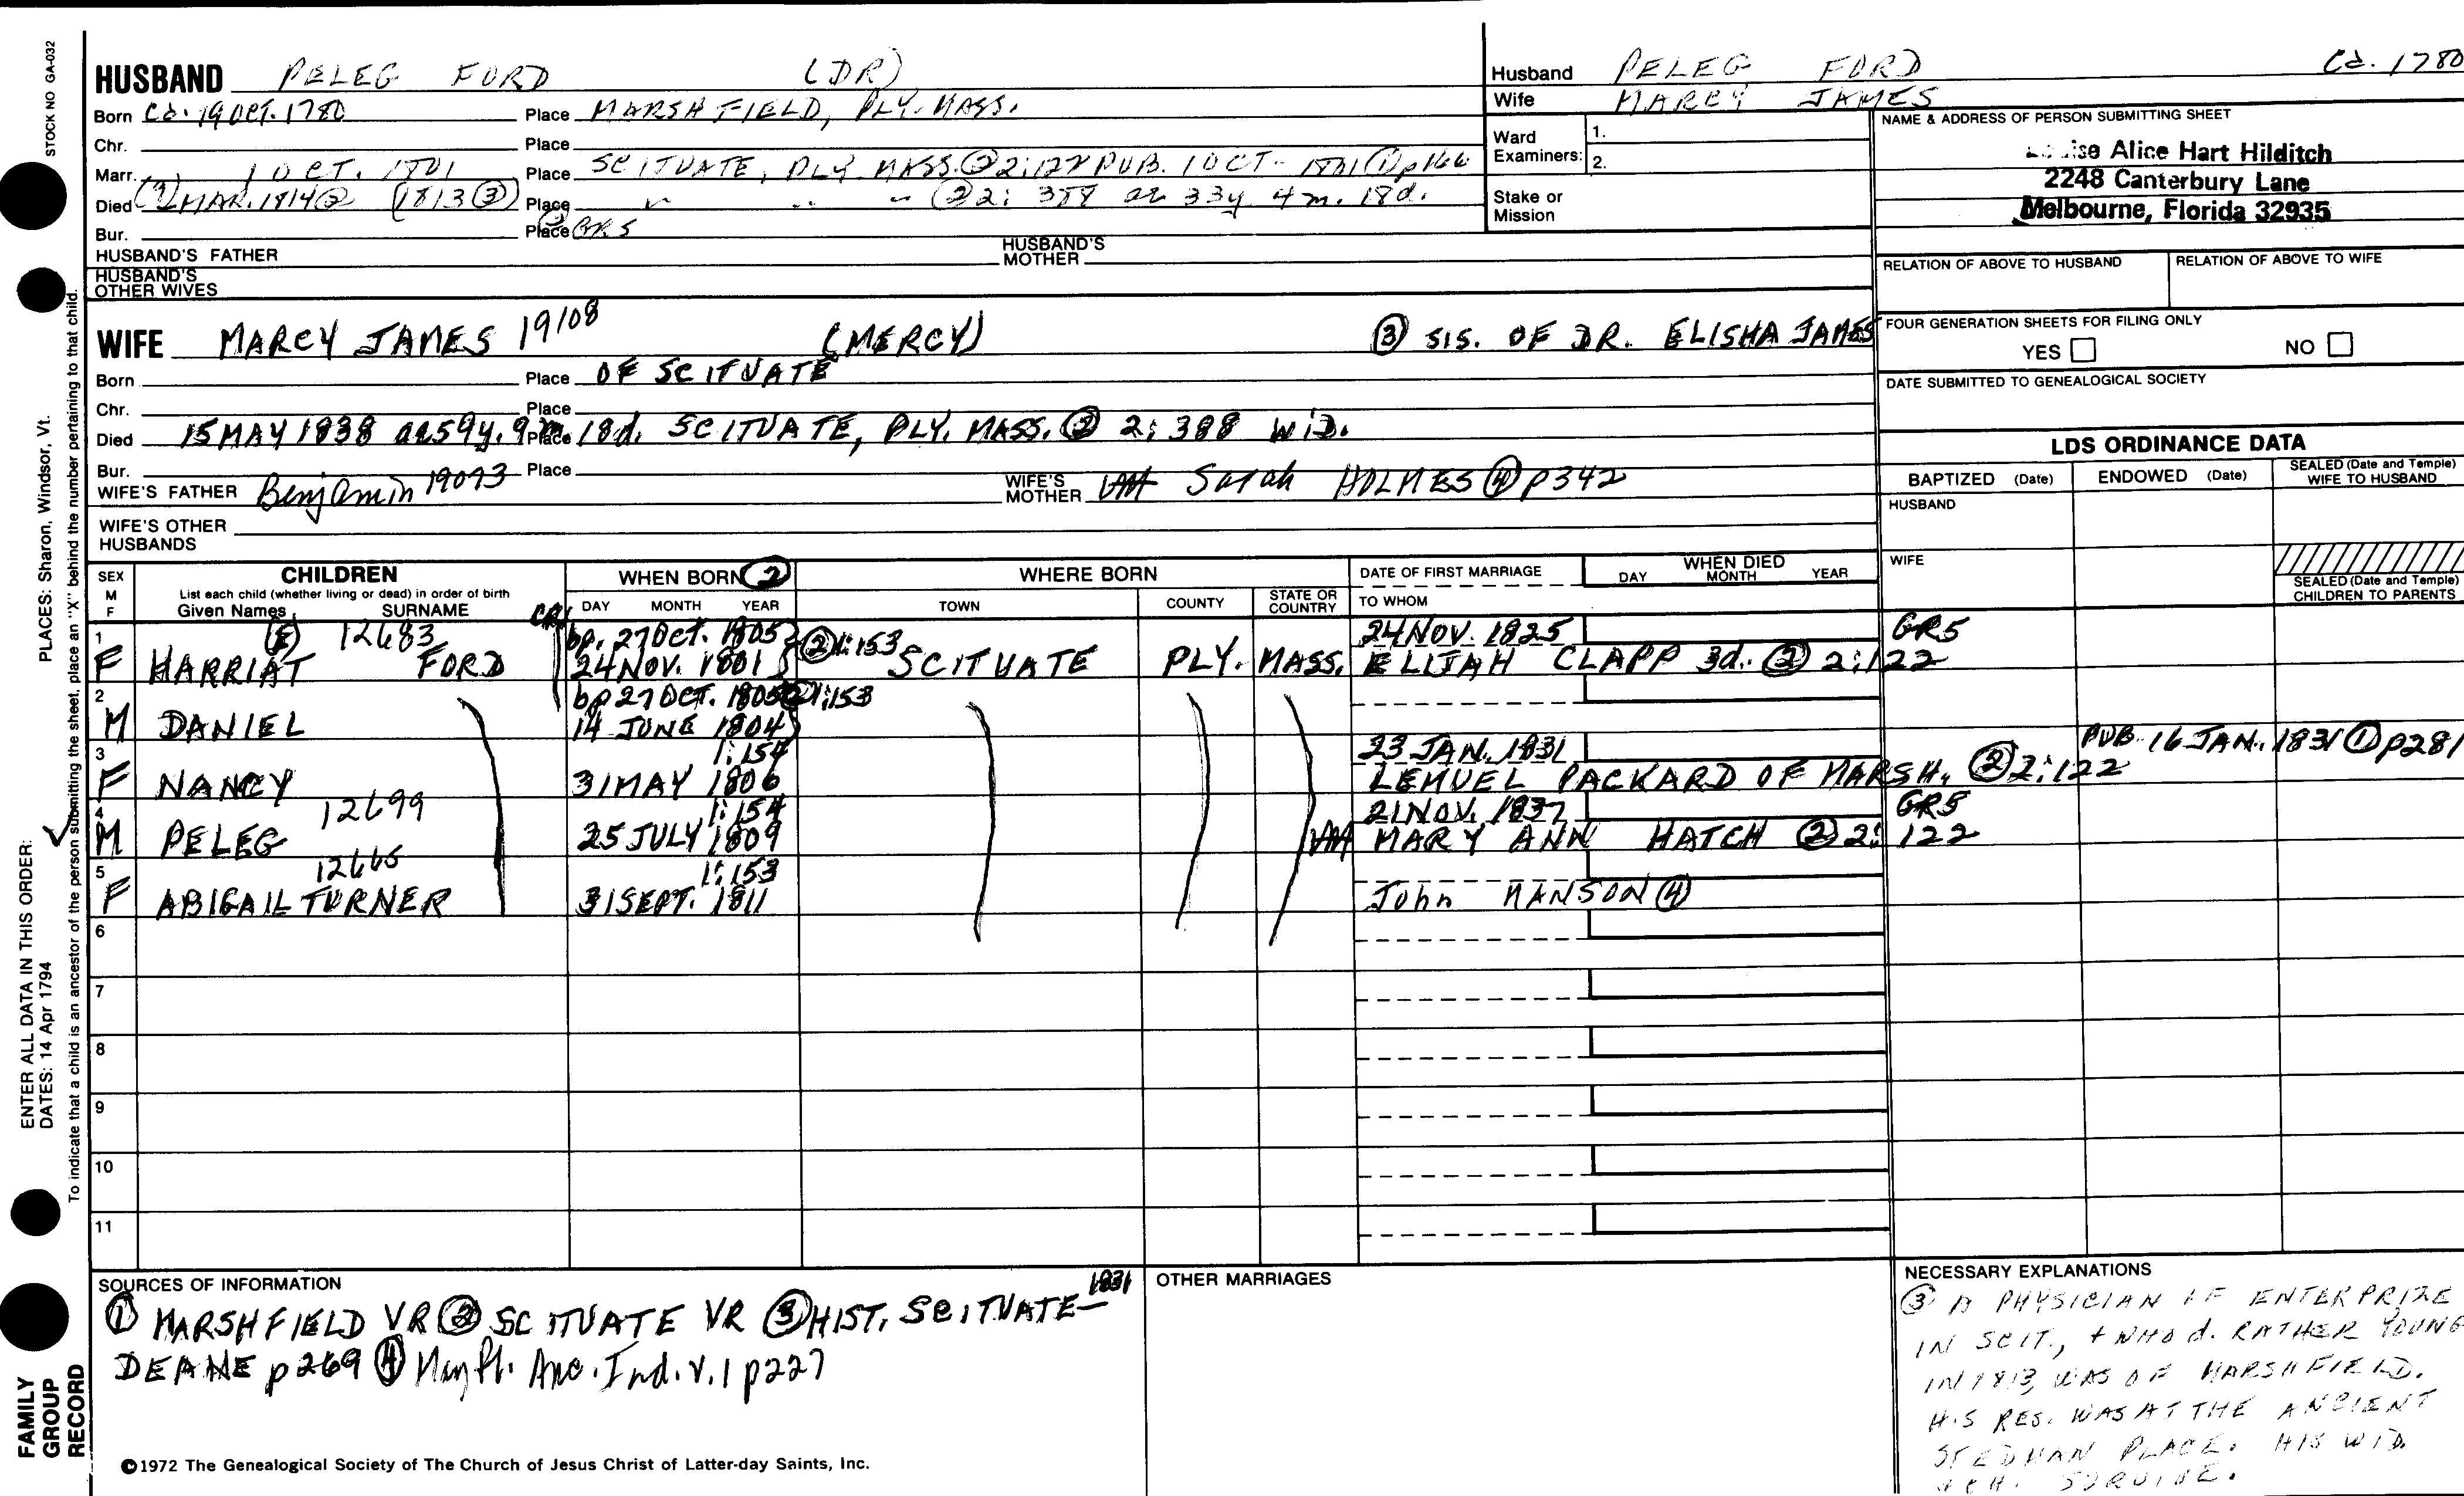 HUSBAND PELEG FORD (DR)
Born Ca. 19 OCT. 1780 Place MARSHFIELD, PLY. MASS.
Chr. Place
Marr. 1 OCT. 1801 Place SCITUATE, PLY. MASS. ② 2:122 PUB. 1 OCT- 1801 ① p166
Died MAR. 1814 ② (1813 ③) Place " " " ② 2: 388 ae 33y 4m. 18d.
Bur. Place ② GR5
HUSBAND'S FATHER HUSBAND'S MOTHER
HUSBAND'S OTHER WIVES
Husband PELEG FORD Ca. 1780
Wife MARCY JAMES
Ward Examiners: 1.
2.
Stake or Mission
NAME & ADDRESS OF PERSON SUBMITTING SHEET
Alice Hart Hilditch
2248 Canterbury Lane
Melbourne, Florida 32935
RELATION OF ABOVE TO HUSBAND RELATION OF ABOVE TO WIFE
FOUR GENERATION SHEETS FOR FILING ONLY
YES NO
DATE SUBMITTED TO GENEALOGICAL SOCIETY
WIFE MARCY JAMES 19108 (MERCY) ③ SIS. OF DR. ELISHA JAMES
Born Place OF SCITUATE
Chr. Place
Died 15 MAY 1838 ae 59y. 9m. Place 18d. SCITUATE, PLY. MASS. ② 2: 388 WID.
Bur. Place
WIFE'S FATHER Benjamin 19093 WIFE'S MOTHER Sarah HOLMES ④ p342
WIFE'S OTHER HUSBANDS
LDS ORDINANCE DATA
BAPTIZED (Date) ENDOWED (Date) SEALED (Date and Temple) WIFE TO HUSBAND
HUSBAND
WIFE
SEALED (Date and Temple) CHILDREN TO PARENTS
SEX M F
CHILDREN
List each child (whether living or dead) in order of birth
Given Names SURNAME
WHEN BORN ②
DAY MONTH YEAR
WHERE BORN
TOWN COUNTY STATE OR COUNTRY
DATE OF FIRST MARRIAGE
TO WHOM
WHEN DIED
DAY MONTH YEAR
1 (E) 12683 CR1 bp. 27 Oct. 1805 ② 1:153 24 NOV. 1825 GR5
F HARRIAT FORD 24 NOV. 1801 SCITUATE PLY. MASS. ELIJAH CLAPP 3d. ② 2:122
2 bp 27 OCT. 1805 ② 1:153
M DANIEL 14 JUNE 1804
3 1:154 23 JAN. 1831 PUB. 16 JAN. 1831 ① p281
F NANCY 31 MAY 1806 LEMUEL PACKARD OF MARSH. ② 2:122
4 12699 1:154 21 NOV. 1837 GR5
M PELEG 25 JULY 1809 MARY ANN HATCH ② 2: 122
5 12665 1:153
F ABIGAIL TURNER 31 SEPT. 1811 John MANSON ④
6
7
8
9
10
11
SOURCES OF INFORMATION
① MARSHFIELD VR ② SCITUATE VR ③ HIST. SCITUATE- 1831
DEANE p269 ④ May Fl. Anc. Ind. v. 1 p227
OTHER MARRIAGES
NECESSARY EXPLANATIONS
③ A PHYSICIAN OF ENTERPRIZE
IN SCIT., + WHO d. RATHER YOUNG
IN 1813, WAS OF MARSHFIELD.
HIS RES. WAS AT THE ANCIENT
STEDMAN PLACE. HIS WID.
+ CH. SURVIVE.
©1972 The Genealogical Society of The Church of Jesus Christ of Latter-day Saints, Inc.
STOCK NO GA-032
ENTER ALL DATA IN THIS ORDER: PLACES: Sharon, Windsor, Vt.
DATES: 14 Apr 1794
To indicate that a child is an ancestor of the person submitting the sheet, place an "X" behind the number pertaining to that child.
FAMILY
GROUP
RECORD